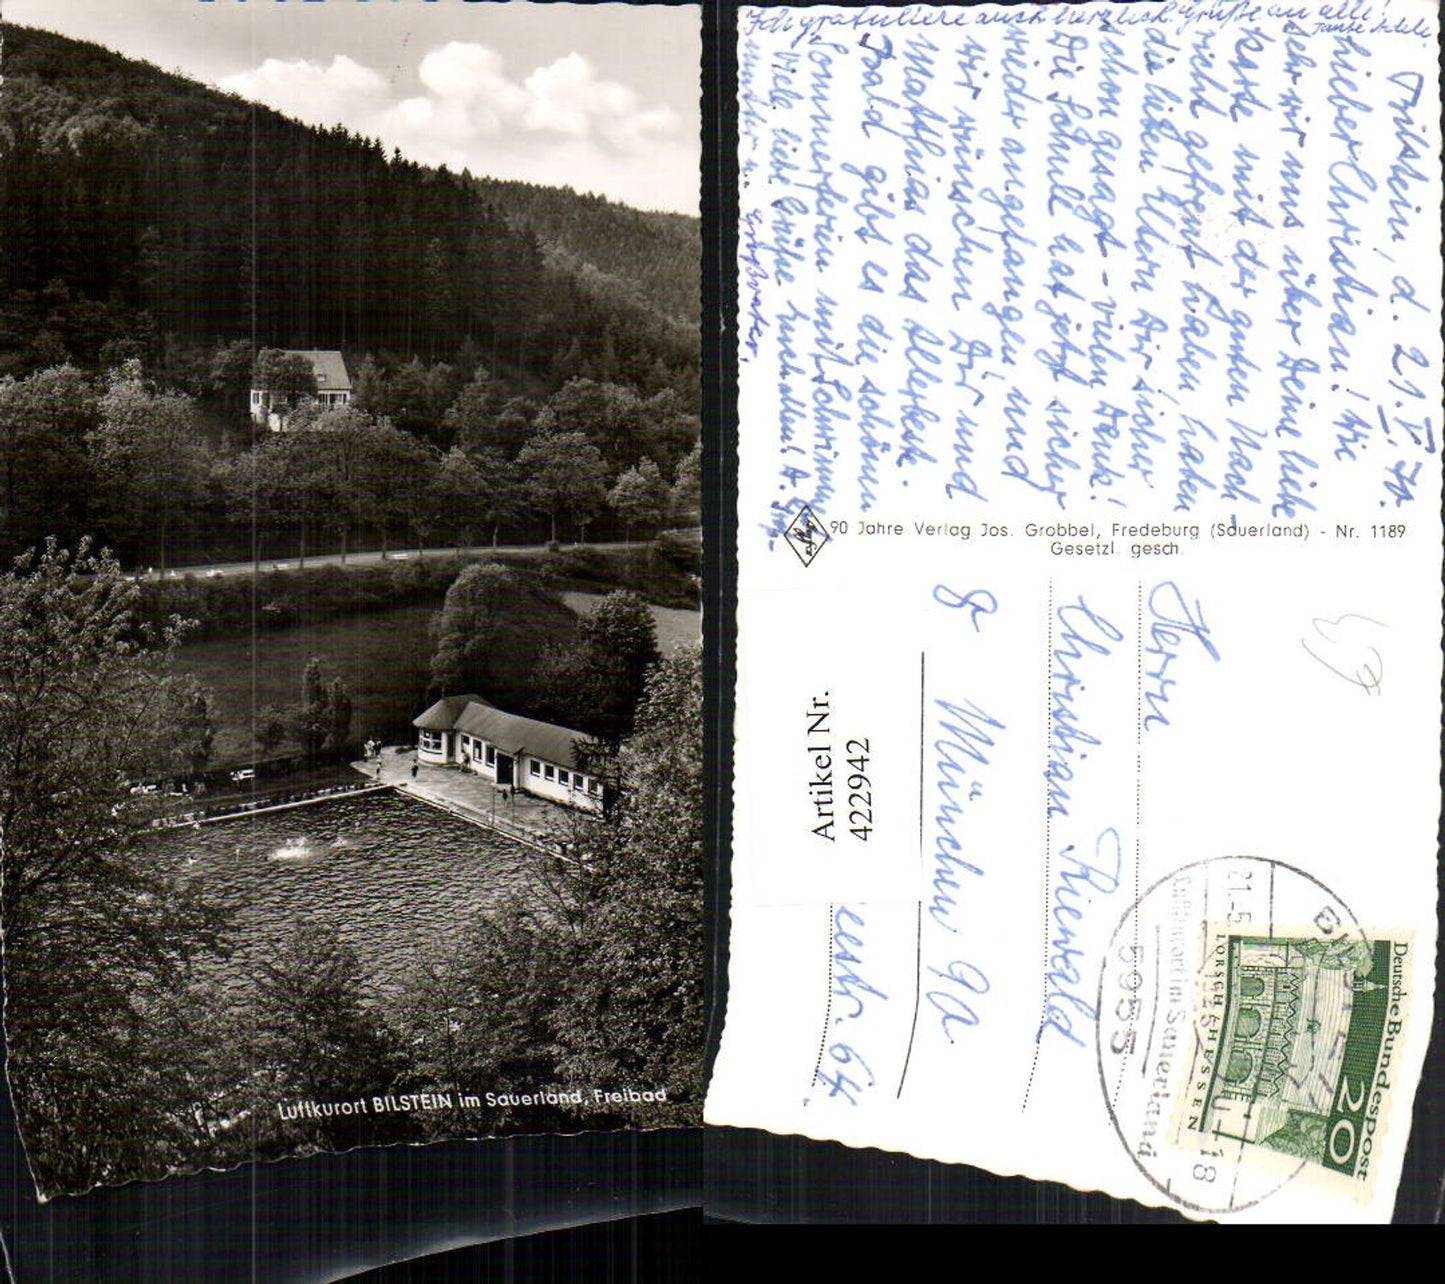 Luftkurort BILSTEIN im Sauerland, Freibad
Bilstein, d. 21.V.70.
Lieber Christian! Wie
sehr wir uns über Deine liebe
Karte mit der guten Nach-
richt gefreut haben, haben
die lieben Eltern Dir sicher
schon gesagt - vielen Dank!
Die Schule hat jetzt sicher
wieder angefangen, und
wir wünschen Dir und
Matthias das Allerbeste.
Bald gibt es die schönen
Sommerferien mit Schwimm-
Viele liebe Grüße Euch allen!
Großvater.
Ich gratuliere auch herzlich. Grüße an alle!
Tante
Agfa
90 Jahre Verlag Jos. Grobbel, Fredeburg (Sauerland) - Nr. 1189
Gesetzl. gesch.
Herrn
Christian Riewald
8 München 90
eestr. 64.
Artikel Nr.
422942
Deutsche Bundespost
20
LORSCH HESSEN
5955
21.-5.
-18
Luftkurort im Sauerland